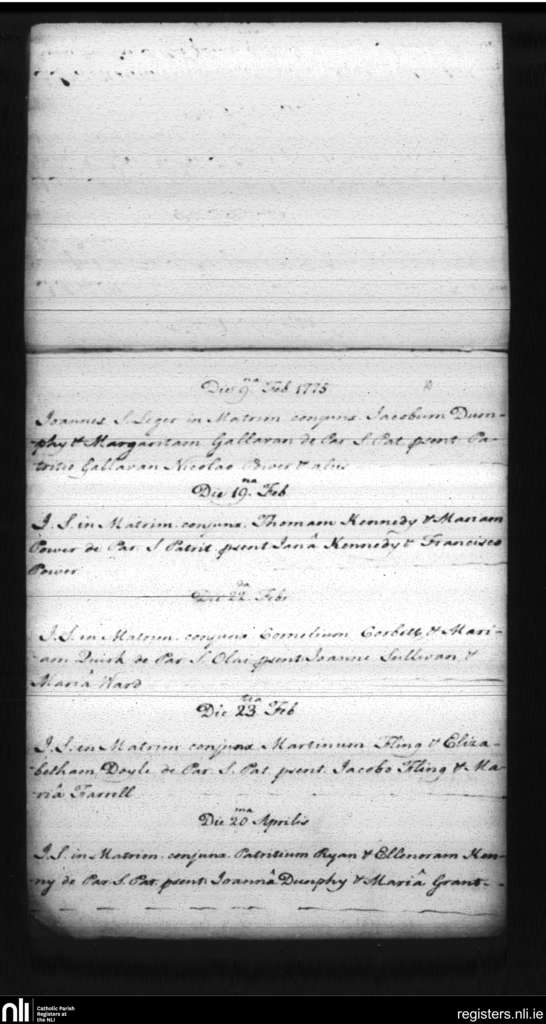 Die 9.na Feb 1775
Joannes S. Leger in Matrim conjunx. Jacobum Dun-
phy & Margaritam Gallavan de Par S. Pat psent Pa-
tritio Gallavan Nicolao Power & aliis
Die 19.na Feb
J. S. in Matrim. conjunx. Thomam Kennedy & Mariam
Power de Par. S Patrit psent Janâ Kennedy & Francisco
Power
Die 22.da Feb.
J. S. in Matrim. conjunx Cornelium Corbett & Mari-
am Quirk de Par S. Olai psent Joanne Sullivan &
Mariâ Ward
Die 23.tia Feb
J. S. in Matrim conjunx Martinum Fling & Eliza-
betham Doyle de Par. S. Pat psent. Jacobo Fling & Ma-
riâ Farrell
Die 20.ma Aprilis
J. S. in Matrim. conjunx. Patritium Ryan & Ellenoram Ken-
ny de Par. S. Pat. psent. Joannâ Dunphy & Mariâ Grant
nli
Catholic Parish
Registers at
the NLI
registers.nli.ie